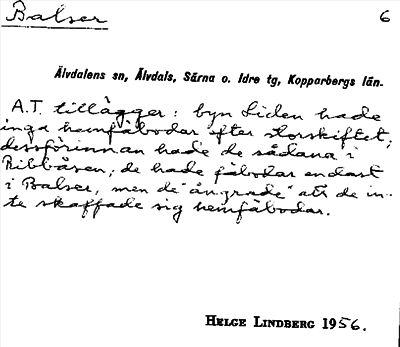 Balser
6
Älvdalens sn, Älvdals, Särna o. Idre tg, Kopparbergs län.
A.T. tillägger: byn Liden hade
inga hemfäbodar efter storskiftet;
dessförinnan hade de sådana i
Ribbåsen; de hade fäbodar endast
i Balser, men de "ångrade" att de in-
te skaffade sig hemfäbodar.
HELGE LINDBERG 1956.